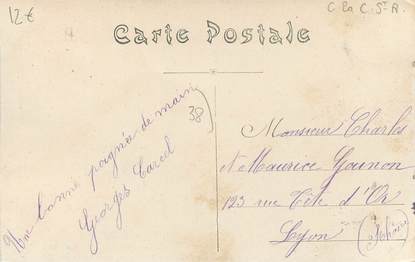 12€
C la C. St R.
Carte Postale
Une bonne poignée de main
38
Georges Carcel
Monsieur Charles
et Maurice Gounon
123 rue Tête d'Or
Lyon (Rhône)